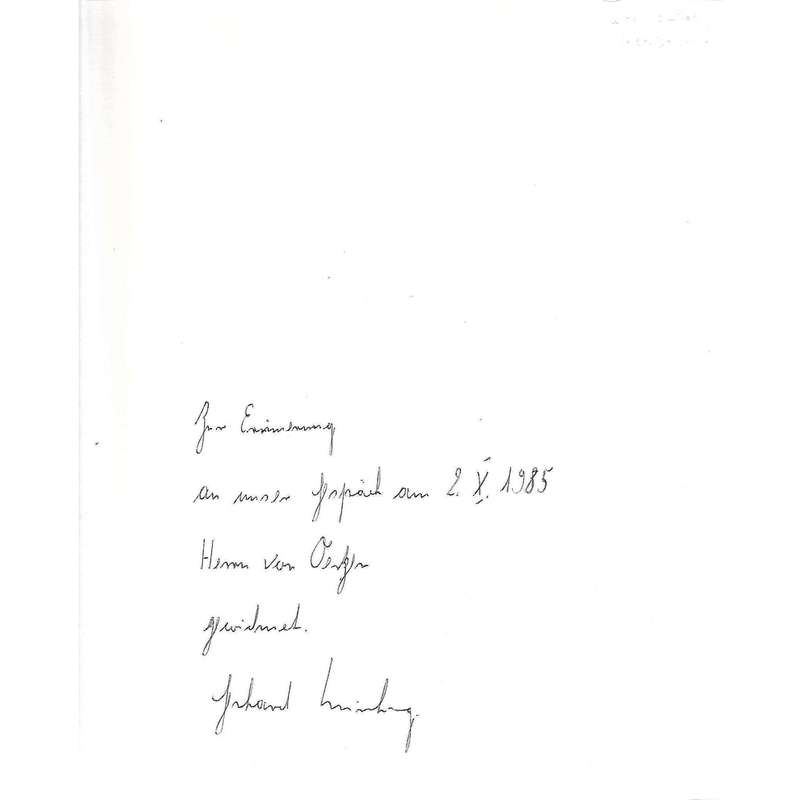 Zur Erinnerung
an unser Gespräch am 2. X. 1985
Herrn von Oertzen
gewidmet.
Gerhard